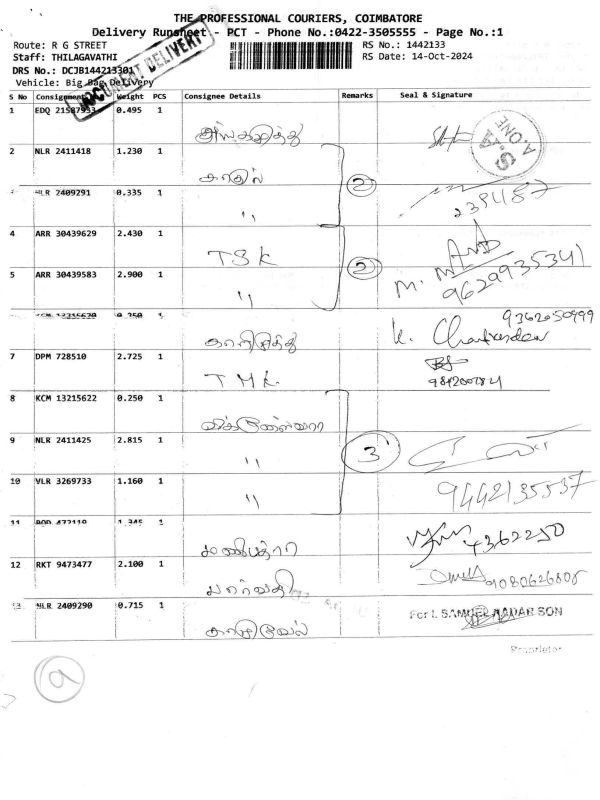 THE PROFESSIONAL COURIERS, COIMBATORE
Delivery Runsheet - PCT - Phone No.:0422-3505555 - Page No.:1
Route: R G STREET
RS No.: 1442133
Staff: THILAGAVATHI
RS Date: 14-Oct-2024
DRS No.: DCJB144213301
DOCUMENT DELIVERY
Vehicle: Big Bag Delivery
S No Consignment Weight PCS Consignee Details Remarks Seal & Signature
1 EDQ 21587933 0.495 1
A. ONE
S.A
2 NLR 2411418 1.230 1
காதல்
2
NLR 2409291 0.335 1
" 239487
4 ARR 30439629 2.430 1
TSK
2
5 ARR 30439583 2.900 1
" 9629935341
KCM 13215620 0.250 1
9362050999
7 DPM 728510 2.725 1
TMK.
8 KCM 13215622 0.250 1
9 NLR 2411425 2.815 1
" 3
10 VLR 3269733 1.160 1
" 9442135537
11 BOD 472110 1.345 1
4362250
12 RKT 9473477 2.100 1
பார்வதி 9080626808
13 NLR 2409290 0.715 1
For I. SAMUEL NADAR SON
காசிவேல்
Proprietor
a